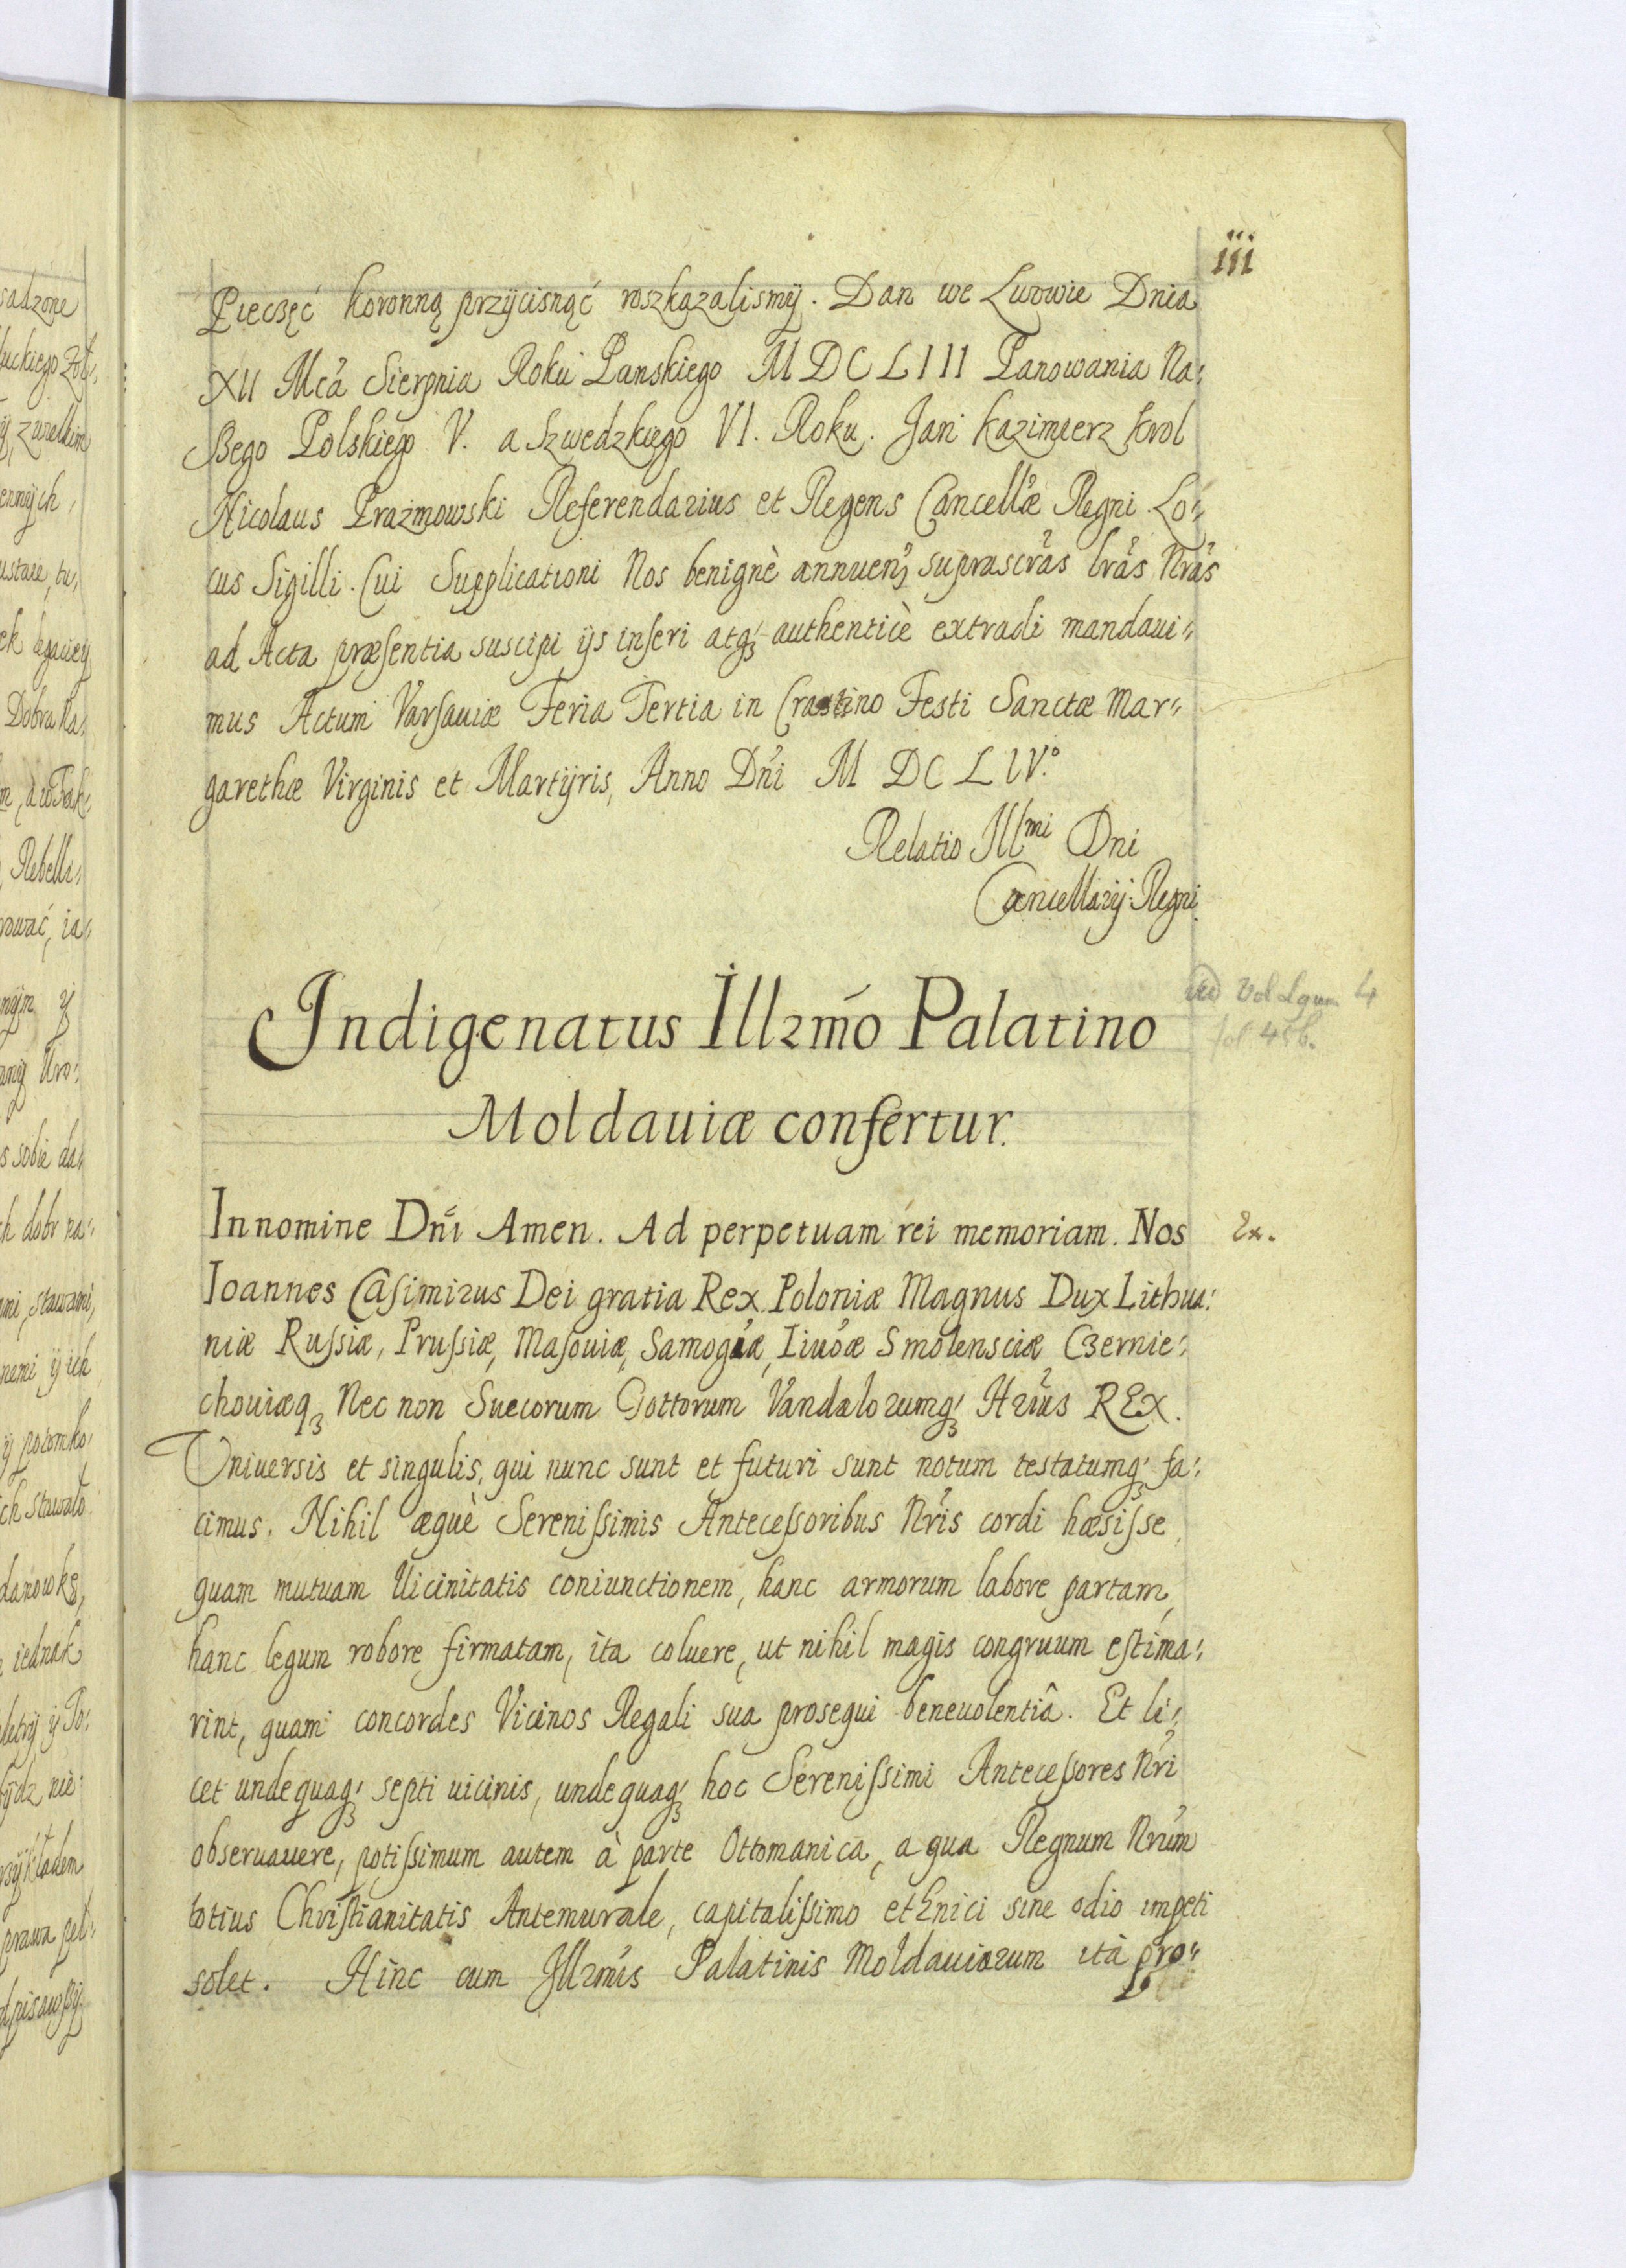 iii
Pieczęć koronną przycisnąć roszkazalismy. Dan we Lwowie Dnia
XII Mca Sierpnia Roku Panskiego M DC LIII Panowania Na,,
szego Polskiego V. a Szwedzkiego VI. Roku. Jan Kazimierz Krol
Nicolaus Prażmowski Referendarius et Regens Cancellæ Regni. Lo,,
cus Sigilli. Cui Supplicationi Nos benignè annuen suprascras lras Nras
ad Acta præsentia suscipi ijs inseri atq; authenticè extradi mandaui,,
mus Actum Varsauiæ Feria Tertia in Crastino Festi Sanctæ Mar,,
garethæ Virginis et Martyris, Anno Dni M DC LIV.o
Relatio Illmi Dni
Cancellarij Regni
Indigenatus Illrmo Palatino
Moldauiæ confertur.
vid Vol Legum 4
fol 456.
In nomine Dni Amen. Ad perpetuam rei memoriam. Nos
Ex.
Ioannes Casimirus Dei gratia Rex Poloniæ Magnus Dux Lithua,,
niæ Russiæ, Prussiæ, Masouiæ, Samogæ, Liuoæ Smolensciæ Czernie,,
chouiæq; Nec non Suecorum Gottorum Vandalorumq; Hrius REx.
Vniuersis et singulis, qui nunc sunt et futuri sunt notum testatumq; fa,,
cimus. Nihil æquè Serenissimis Antecessoribus Nris cordi hæsisse
quam mutuam Vicinitatis coniunctionem, hanc armorum labore partam,
hanc legum robore firmatam, ita coluere, ut nihil magis congruum estima,,
rint, quam concordes Vicinos Regali sua prosequi beneuolentiâ. Et li,,
cet undequaq; septi uicinis, undequaq; hoc Serenissimi Antecessores Nri
obseruauere, potissimum autem à parte Ottomanica, a qua Regnum Nrum
totius Christianitatis Antemurale, capitalissimo ethnici sine odio impeti
solet. Hinc cum Illrmis Palatinis Moldauiarum ita pro,,